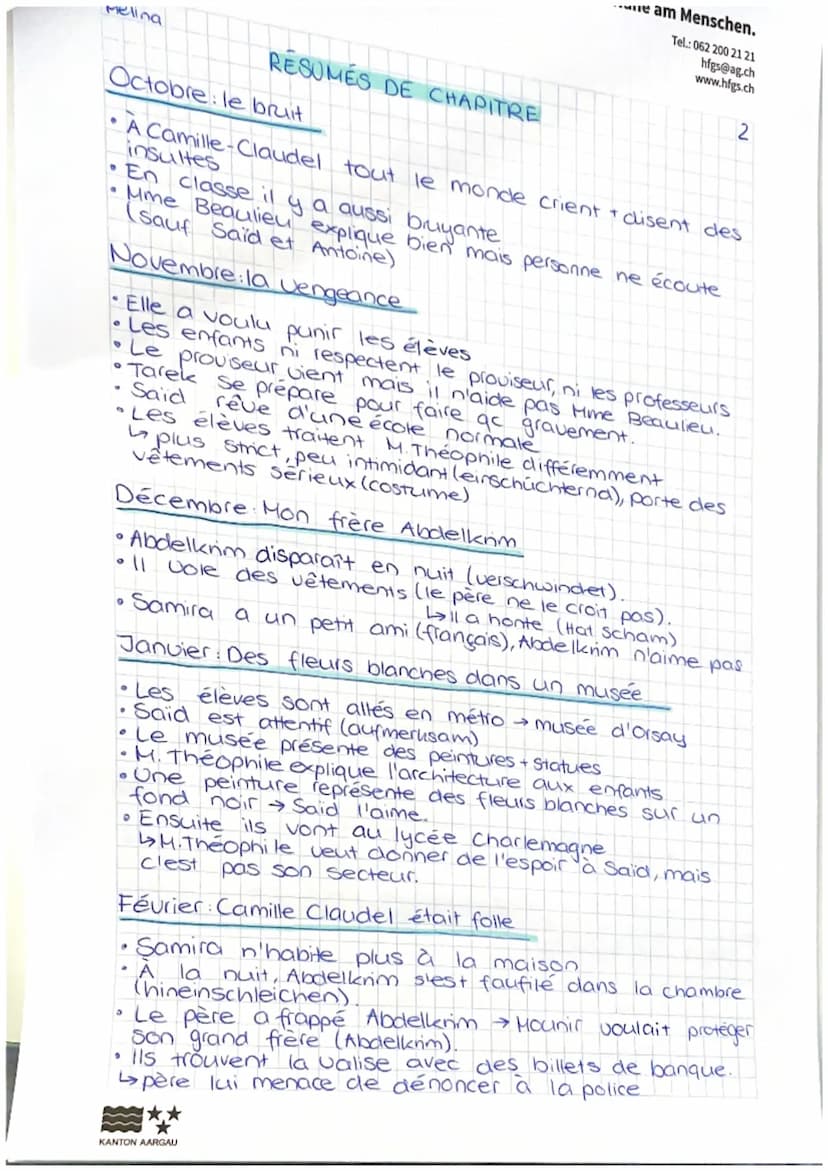 Melina
am Menschen.
Tel.: 062 200 21 21
hfgs@ag.ch
www.hfgs.ch
2
RÉSUMÉS DE CHAPITRE
Octobre: le bruit
• À Camille-Claudel tout le monde crient + disent des
insultes
• En classe il y a aussi bruyante
• Mme Beaulieu explique bien mais personne ne écoute
(sauf Saïd et Antoine)
Novembre: la vengeance
• Elle a voulu punir les élèves
• Les enfants ni respectent le proviseur, ni les professeurs
• Le prouseur vient mais il n'aide pas Mme Beaulieu.
• Tarek se prépare pour faire qc gravement.
• Said rêve d'une école normale
• Les élèves traitent M. Théophile différemment
↳ plus strict, peu intimidant (einschüchternd), porte des
vêtements sérieux (costume)
Décembre: Mon frère Abdelkrim
• Abdelkrim disparaît en nuit (verschwindet).
• Il vole des vêtements (le père ne le croit pas).
↳ il a honte (Hat scham)
• Samira a un petit ami (français), Abdelkrim n'aime pas
Janvier: Des fleurs blanches dans un musée
• Les élèves sont allés en métro → musée d'Orsay
• Said est attentif (aufmerksam)
• Le musée présente des peintures + statues
• M. Théophile explique l'architecture aux enfants
• Une peinture représente des fleurs blanches sur un
fond noir → Said l'aime.
• Ensuite ils vont au lycée Charlemagne
↳ M. Théophile veut donner de l'espoir à Said, mais
c'est pas son secteur.
Février: Camille Claudel était folle
• Samira n'habite plus à la maison
• À la nuit, Abdelkrim s'est faufilé dans la chambre
(hineinschleichen).
• Le père a frappé Abdelkrim → Mounir voulait protéger
son grand frère (Abdelkrim).
• Ils trouvent la valise avec des billets de banque.
↳ père lui menace de dénoncer à la police
KANTON AARGAU